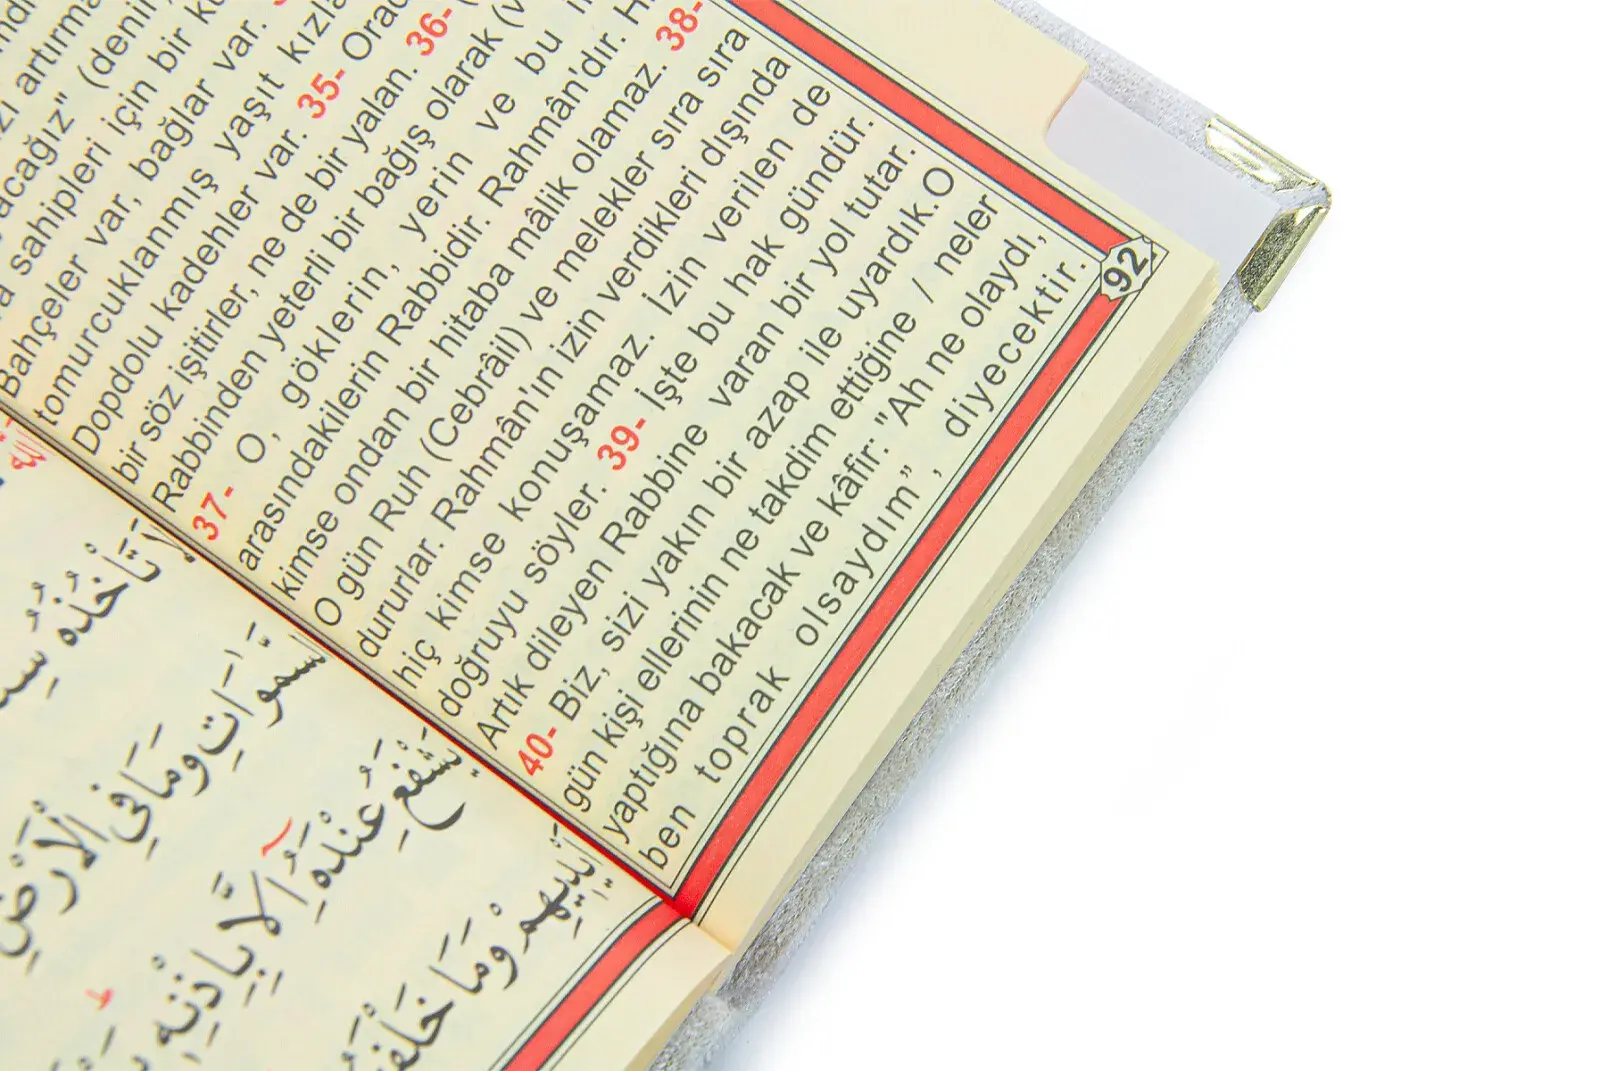 zi artırma
acağız" (denir
sahipleri için bir ku
Bahçeler var, bağlar var.
tomurcuklanmış yaşıt kızla
Dopdolu kadehler var. 35- Orad
bir söz işitirler, ne de bir yalan. 36- (
Rabbinden yeterli bir bağış olarak (v
37- O, göklerin, yerin ve bu i
arasındakilerin Rabbidir. Rahmân'dır. H
kimse ondan bir hitaba mâlik olamaz. 38-
O gün Ruh (Cebrâil) ve melekler sıra sıra
dururlar. Rahmân'ın izin verdikleri dışında
hiç kimse konuşamaz. İzin verilen de
doğruyu söyler. 39- İşte bu hak gündür.
Artık dileyen Rabbine varan bir yol tutar.
40- Biz, sizi yakın bir azap ile uyardık.O
gün kişi ellerinin ne takdim ettiğine / neler
yaptığına bakacak ve kâfir: "Ah ne olaydı,
ben toprak olsaydım”, diyecektir.
92
لَا تَأْخُذُهُ سِنَ
السَّمٰوَاتِ وَمَا فِي الْاَرْضِ
يَشْفَعُ عِنْدَهُٓ اِلَّا بِاِذْنِه۪ يَعْ
اَيْد۪يهِمْ وَمَا خَلْفَهُ